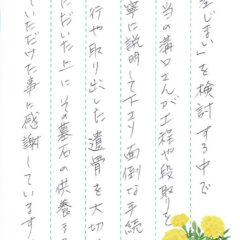 「じまい」を検討する中で
当の溝口さんが工程や段取りを
寧に説明して下さり面倒な手続
行や取り出した遺骨を大切
ただいた上にその墓石の供養ま
ていただけた事に感謝しています